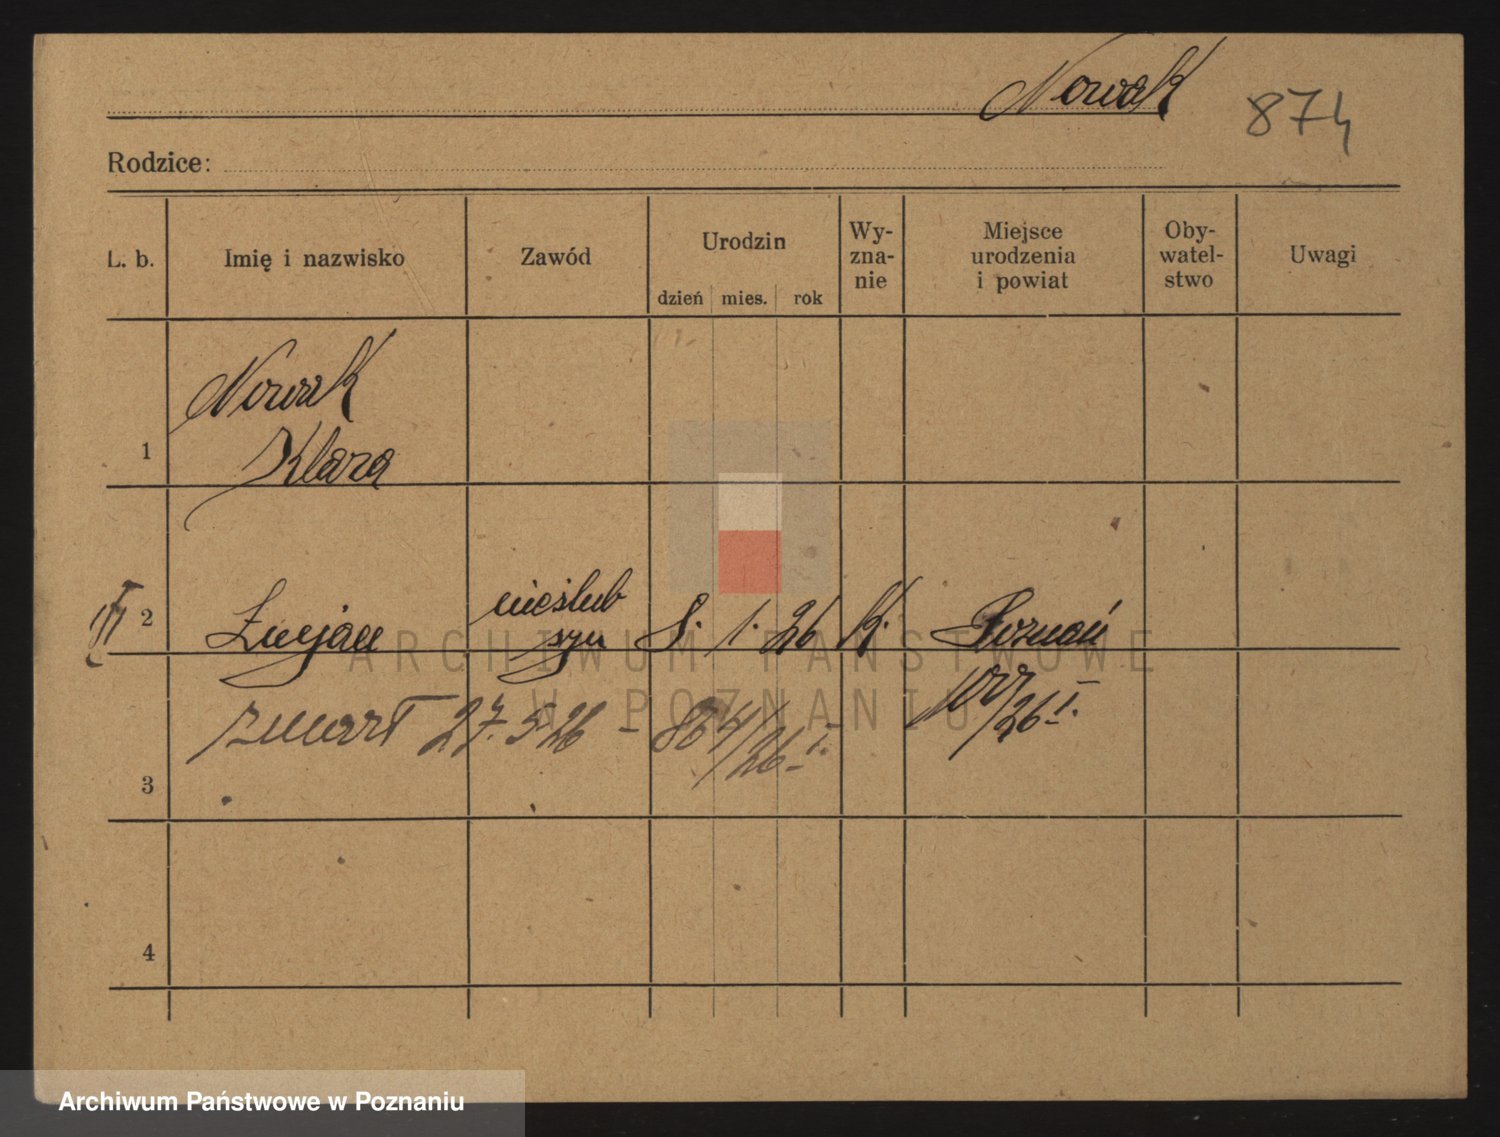 Nowak
874
Rodzice:
L. b.
Imię i nazwisko
Zawód
Urodzin
dzień mies. rok
Wy-
zna-
nie
Miejsce
urodzenia
i powiat
Oby-
watel-
stwo
Uwagi
1
Nowak
Klara
2
Lucjan
nieślub
syn
8. 1. 26
K.
Poznań
/26 I.
zmarł 27. 5 26 - 864/26 - I.
3
4
ARCHIWUM PAŃSTWOWE
W POZNANIU
Archiwum Państwowe w Poznaniu